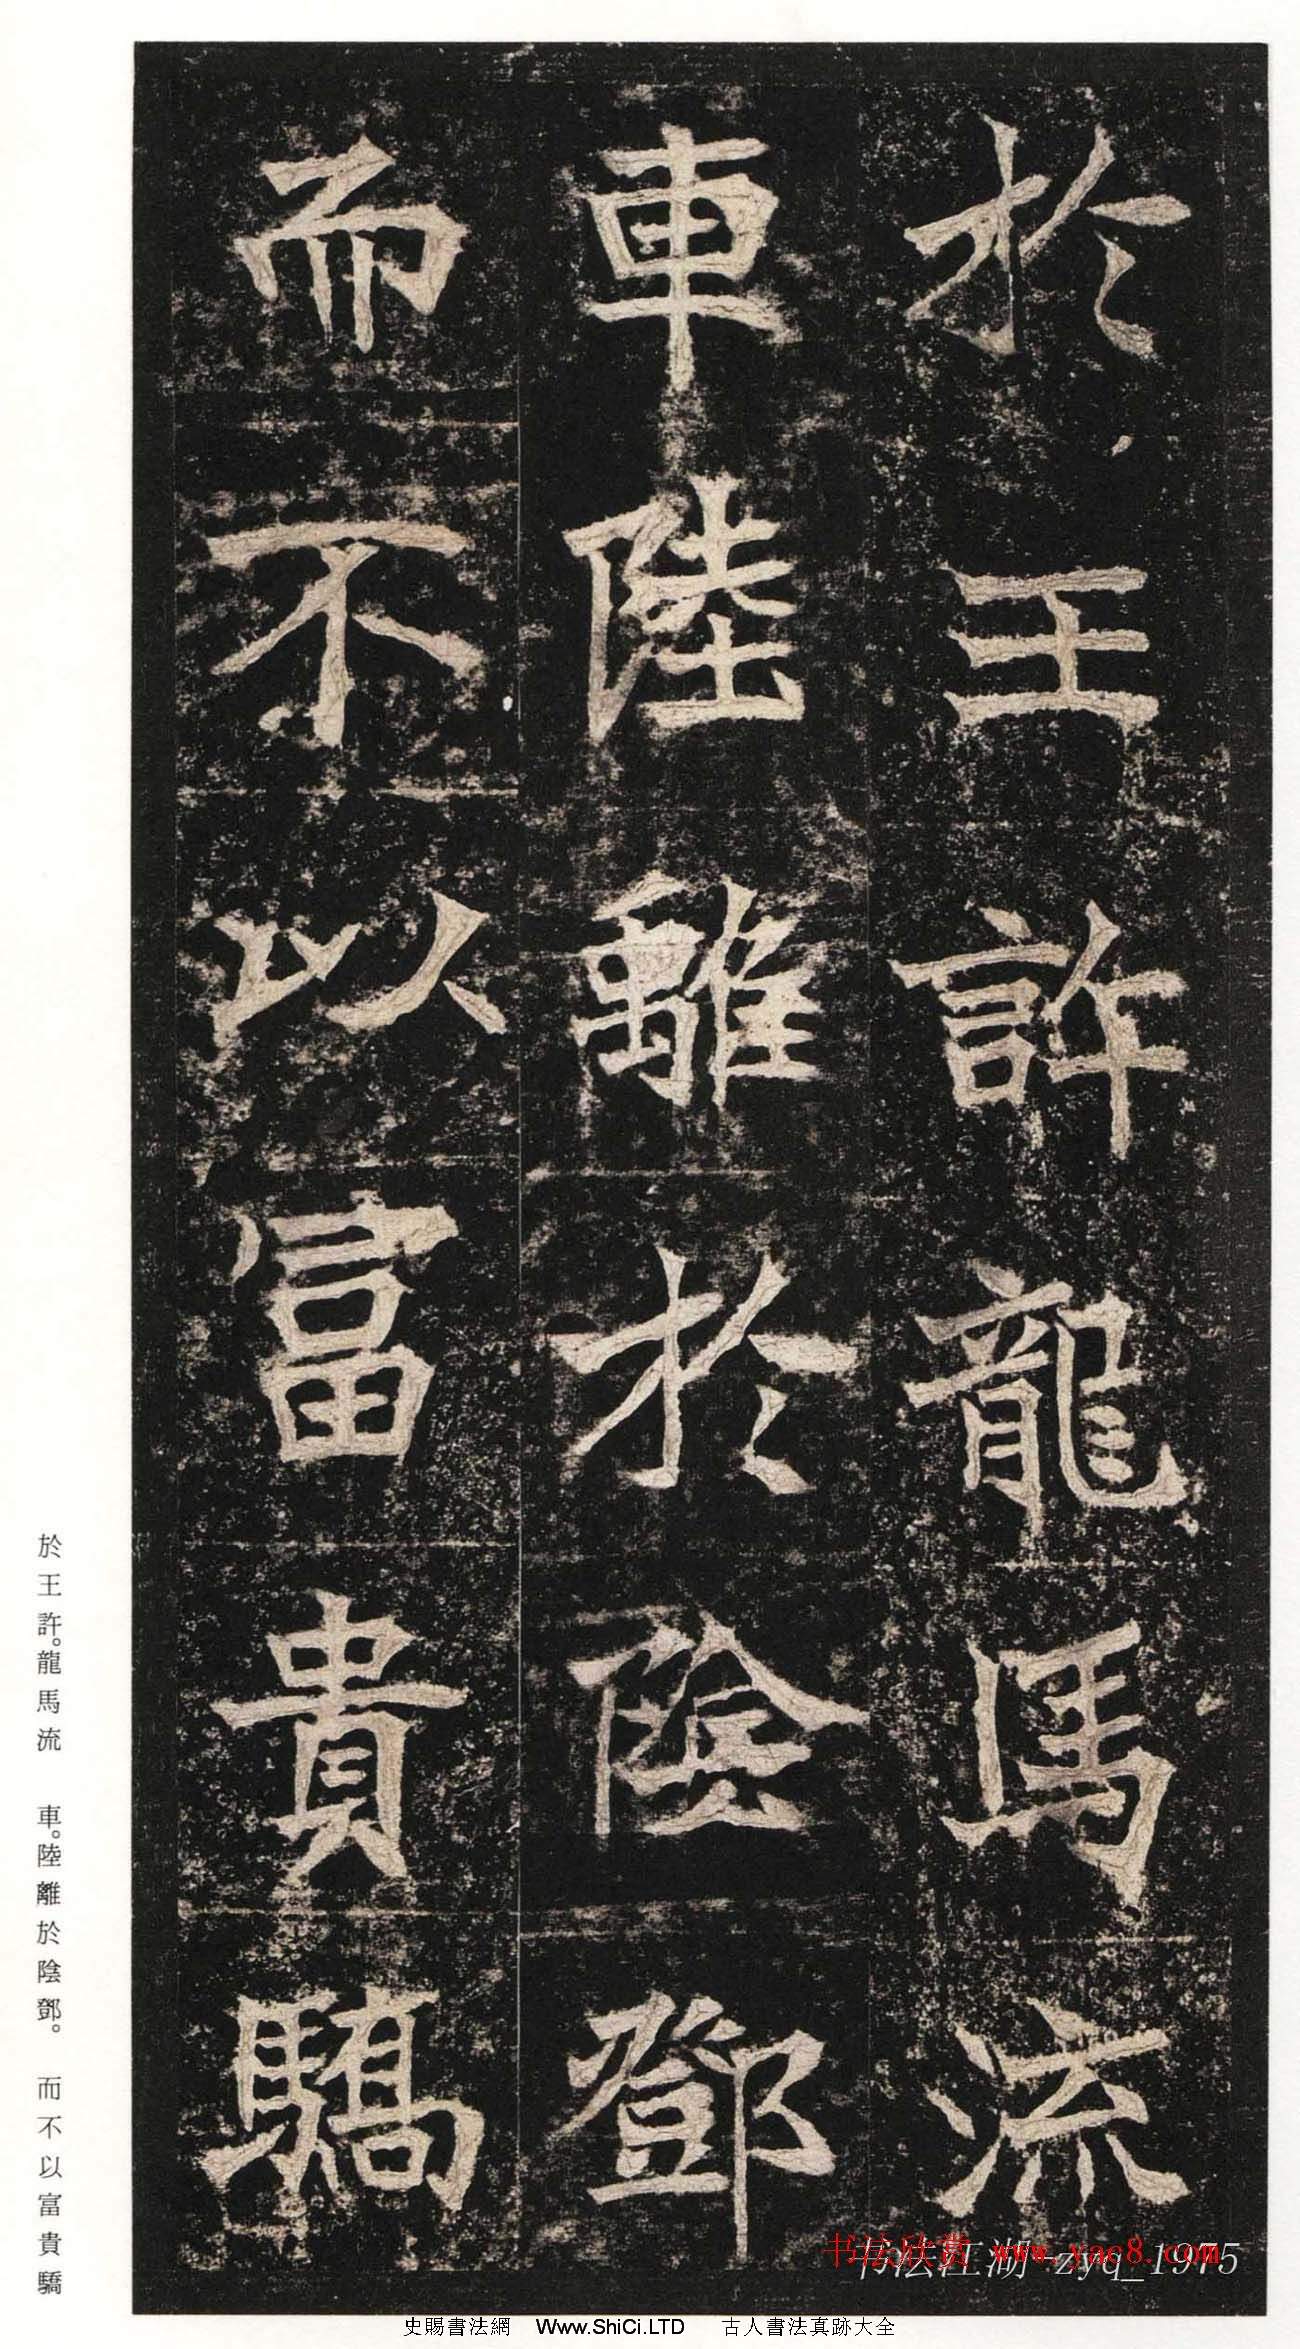 於王許龍馬流
車陸離於陰鄧
而不以富貴驕
於王許。龍馬流 車。陸離於陰鄧。 而不以富貴驕
书法欣赏 www.yac8.com
书法江湖 zyq_1975
史賜書法網 Www.ShiCi.LTD 古人書法真跡大全